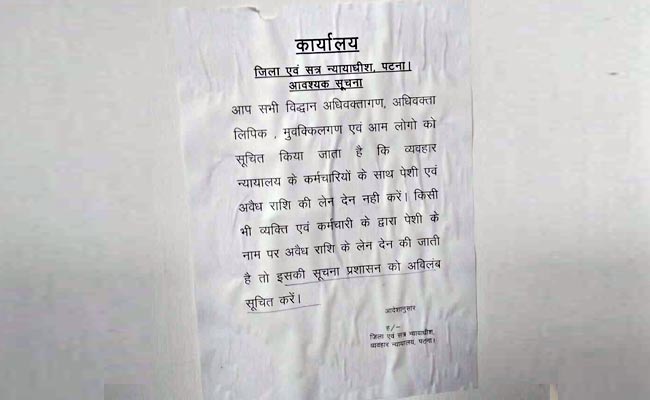 कार्यालय
जिला एवं सत्र न्यायाधीश, पटना।
आवश्यक सूचना
आप सभी विद्धान अधिवक्तागण, अधिवक्ता
लिपिक , मुवक्किलगण एवं आम लोगो को
सूचित किया जाता है कि व्यवहार
न्यायालय के कर्मचारियों के साथ पेशी एवं
अवैध राशि की लेन देन नही करें। किसी
भी व्यक्ति एवं कर्मचारी के द्वारा पेशी के
नाम पर अवैध राशि के लेन देन की जाती
है तो इसकी सूचना प्रशासन को अविलंब
सूचित करें।
आदेशानुसार
ह/-
जिला एवं सत्र न्यायाधीश,
व्यवहार न्यायालय, पटना।